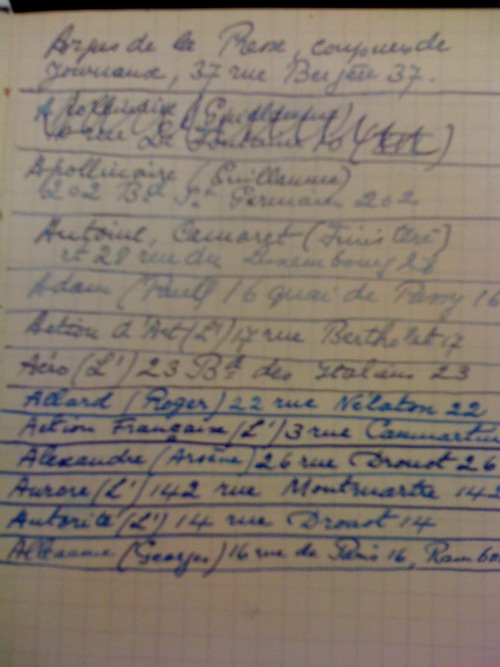 Argus de la Presse, coupures de
Journaux, 37 rue Bergère 37.
Apollinaire (Guillaume)
rue La Fontaine
Apollinaire (Guillaume)
202 Bd St Germain 202
Antoine, Camaret (Finistère)
et 28 rue du Luxembourg 28
Adam (Paul) 16 quai de Passy 16
Action d'Art (L') 17 rue Berthelet 17
Aéro (L') 23 Bd des Italiens 23
Allard (Roger) 22 rue Nélaton 22
Action Française (L') 3 rue Caumartin
Alexandre (Arsène) 26 rue Drouot 26
Aurore (L') 142 rue Montmartre 142
Autorité (L') 14 rue Drouot 14
(Georges) 16 rue de Paris 16,